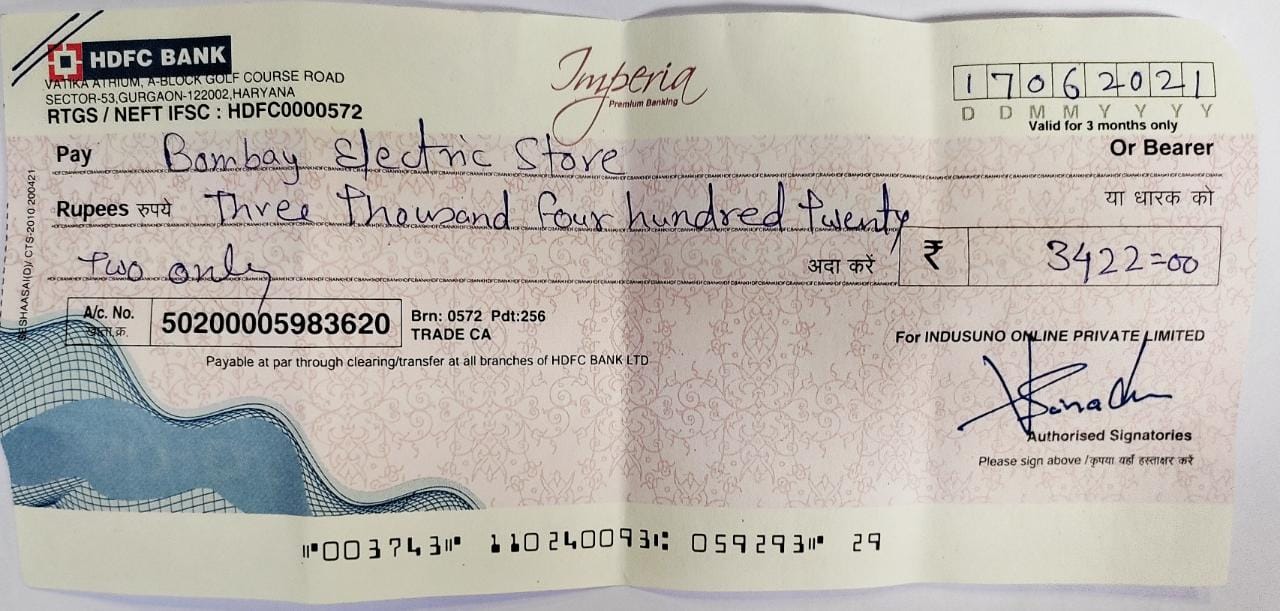 HDFC BANK
VATIKA ATRIUM, A-BLOCK GOLF COURSE ROAD
SECTOR-53,GURGAON-122002,HARYANA
RTGS / NEFT IFSC : HDFC0000572
Imperia
Premium Banking
17062021
D D M M Y Y Y Y
Valid for 3 months only
Pay Bombay Electric Store Or Bearer
Rupees रुपये Three Thousand four hundred twenty या धारक को
two only अदा करें ₹ 3422=00
A/c. No. 50200005983620 Brn: 0572 Pdt:256
खाता.क्र. TRADE CA
Payable at par through clearing/transfer at all branches of HDFC BANK LTD
For INDUSUNO ONLINE PRIVATE LIMITED
Authorised Signatories
Please sign above /कृपया यहाँ हस्ताक्षर करें
CTS-2010 200421
⑈003743⑈ 110240093⑆ 059293⑈ 29